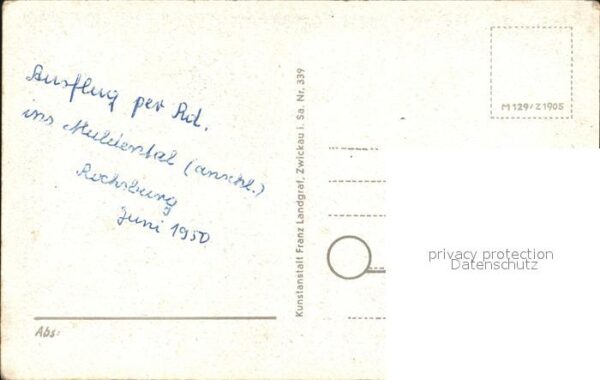 Ausflug per Rd.
ins Muldental (anschl.)
Rochsburg
Juni 1950
Abs:
Kunstanstalt Franz Landgraf, Zwickau i. Sa. Nr. 339
M 129/Z 1905
privacy protection
Datenschutz